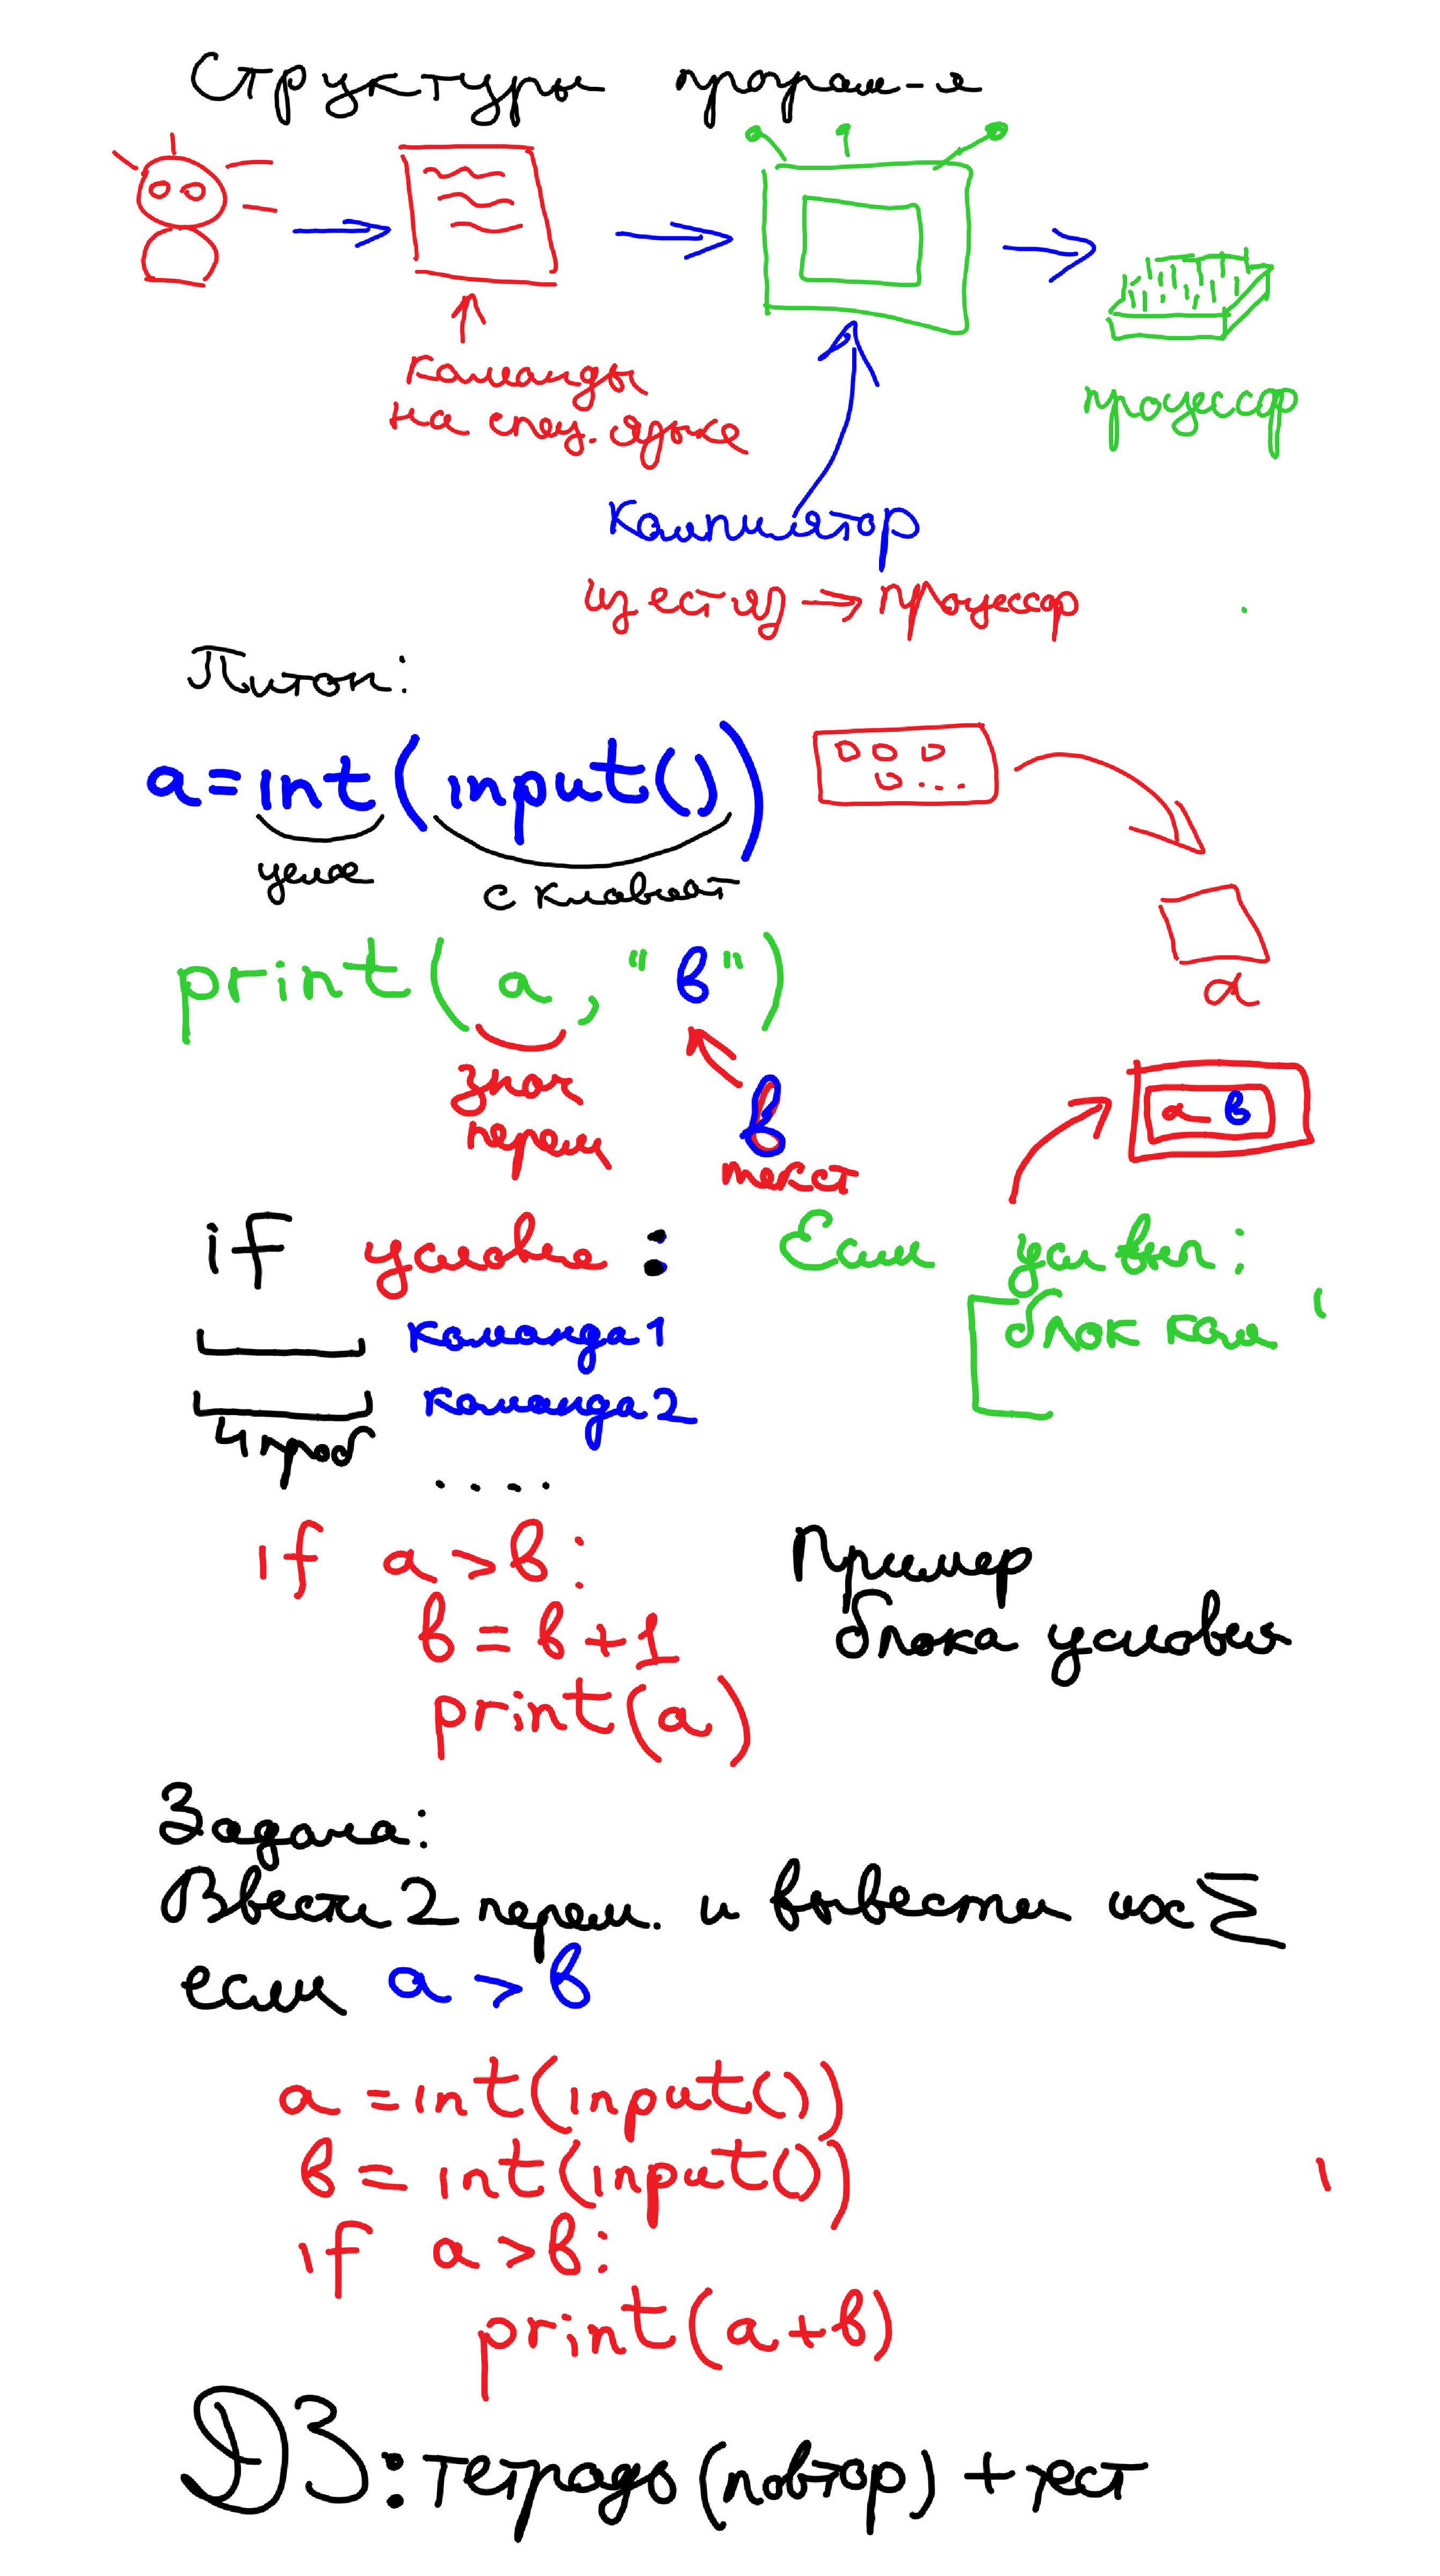 Структуры програм-я
команды
на спец. языке
процессор
Компилятор
из ест яз → процессор
Питон:
a=int(input())
целое
с клавиат
print(a, "в")
a
знач
перем
в
текст
a в
if условие :
Если усл вып:
команда1
блок ком
команда2
4 проб
....
if a>в:
Пример
в = в+1
блока условия
print(a)
Задача:
Ввести 2 перем. и вывести их Σ
если a > в
a =int(input())
в = int(input())
if a>в:
print(a+в)
ДЗ: тетрадь (повтор) + тест